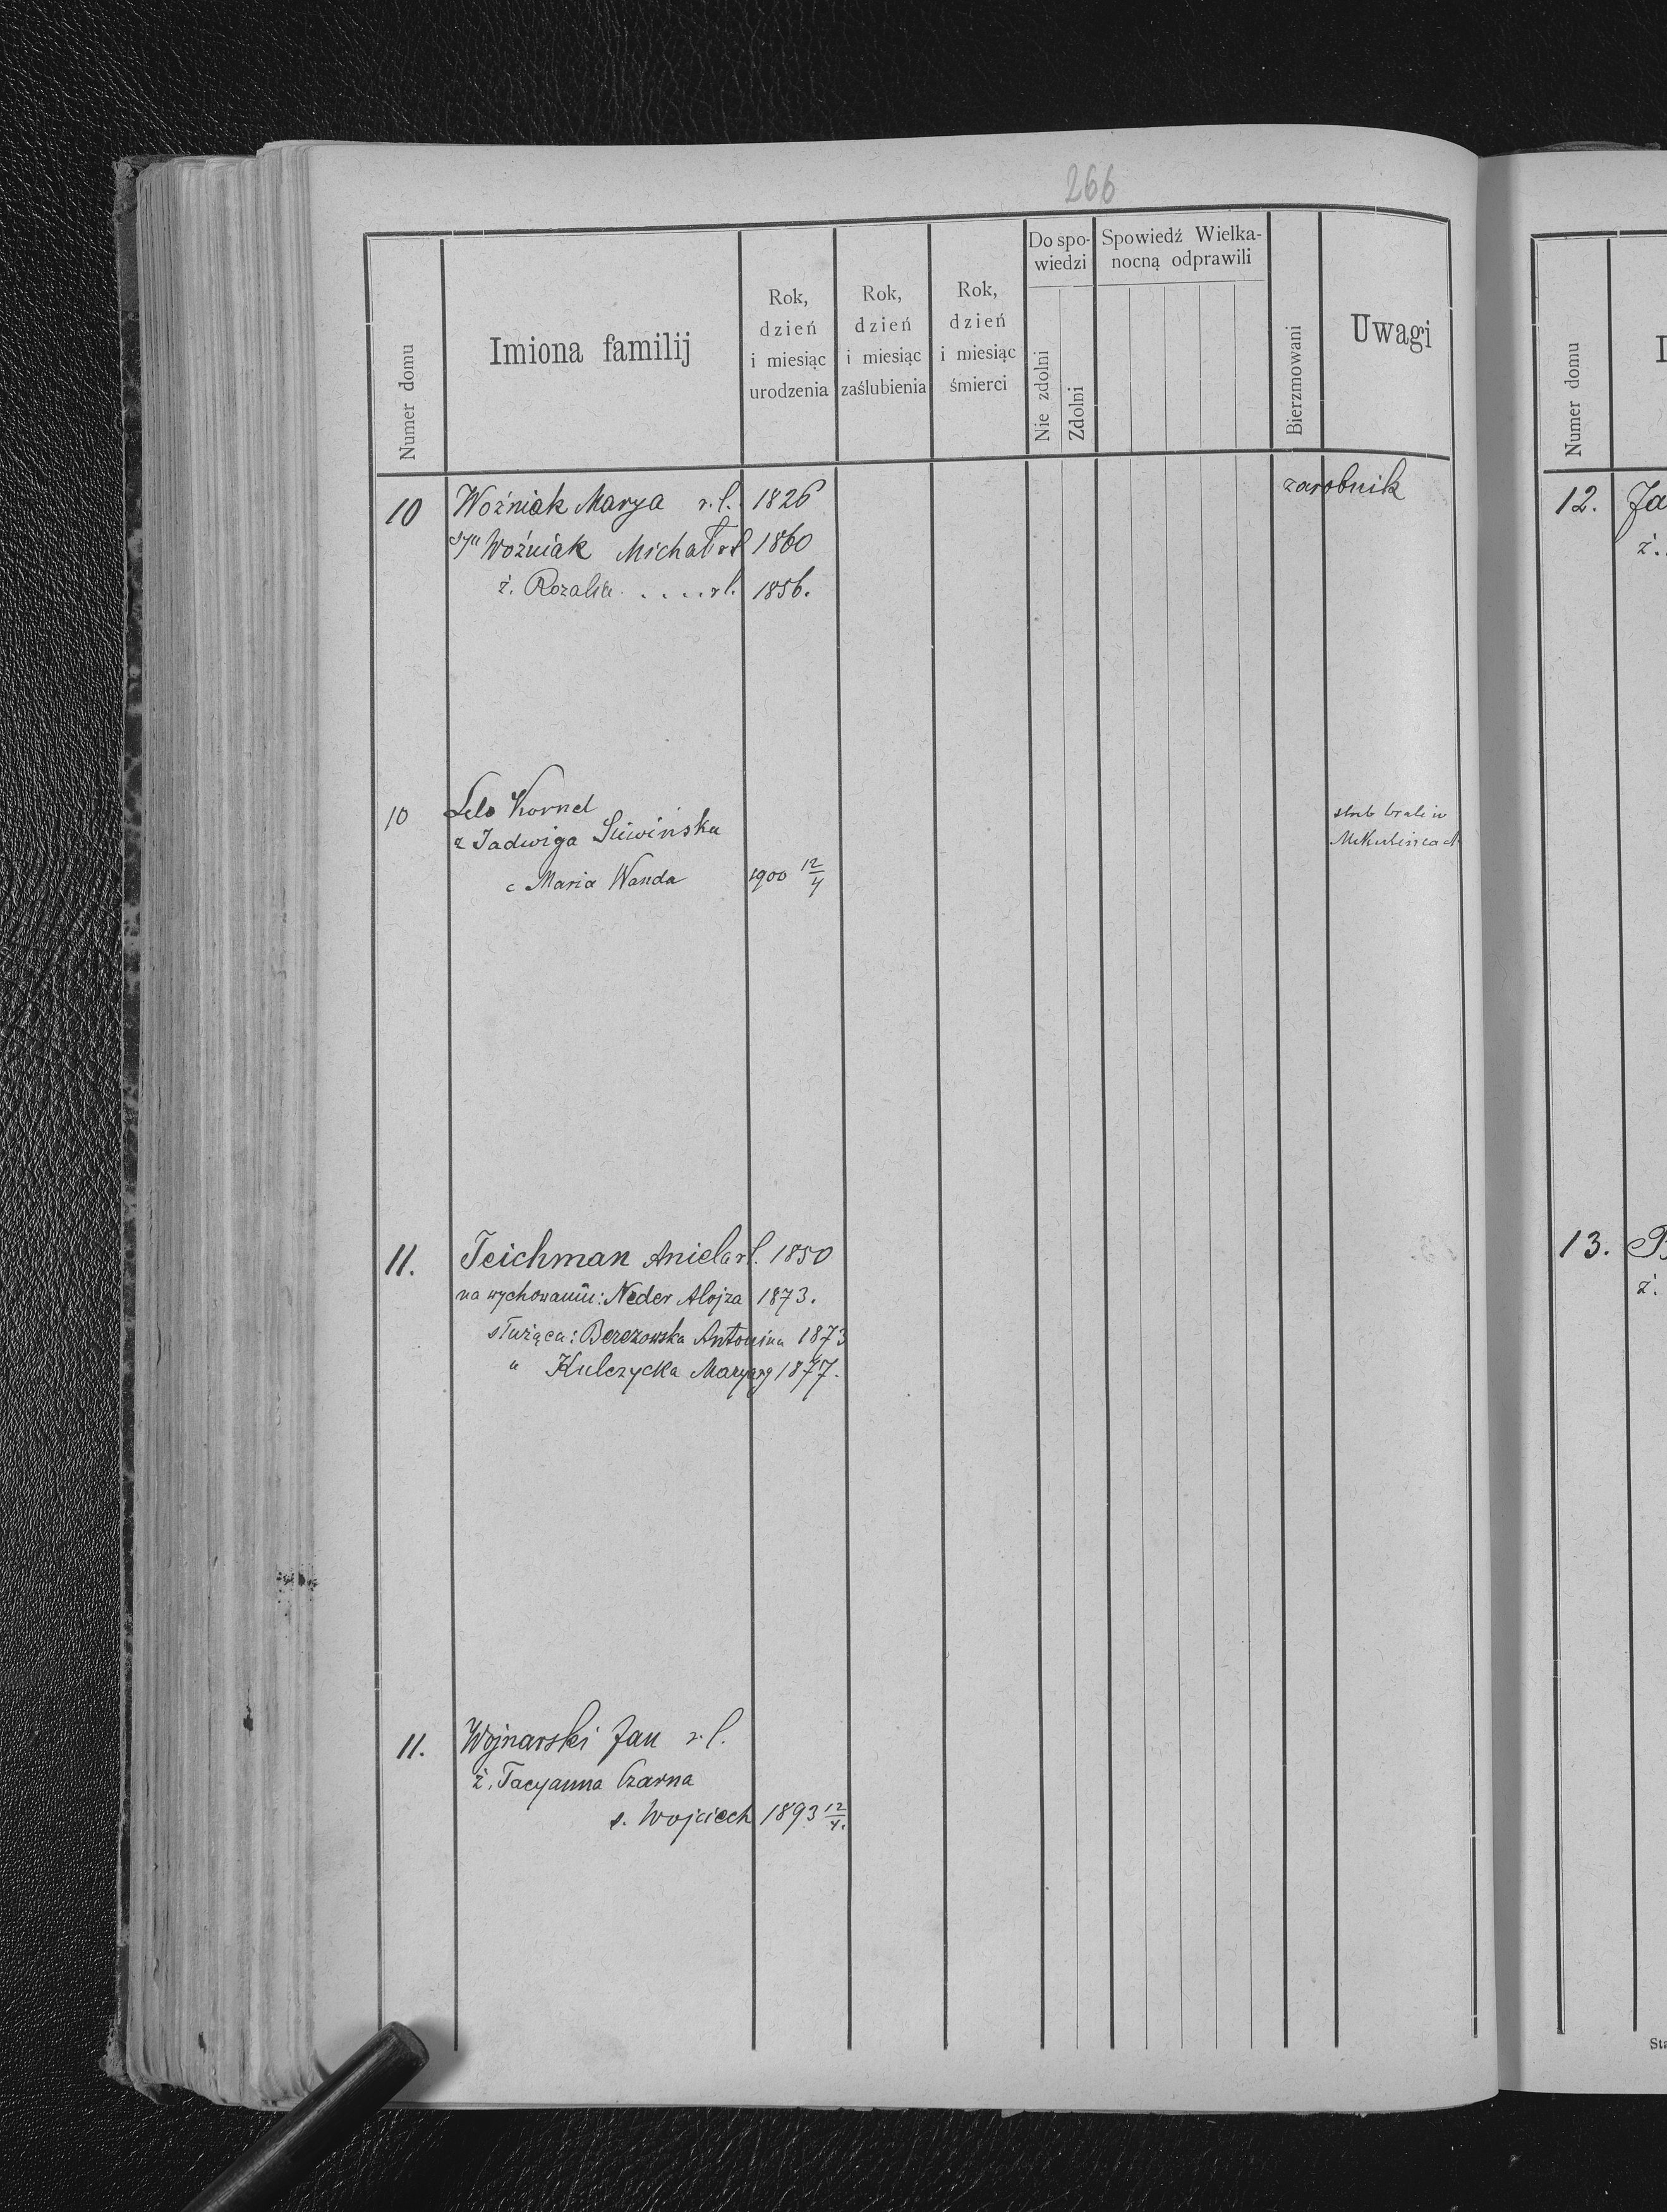 266
Numer domu
Imiona familij
Rok,
dzień
i miesiąc
urodzenia
Rok,
dzień
i miesiąc
zaślubienia
Rok,
dzień
i miesiąc
śmierci
Do spo-
wiedzi
Nie zdolni
Zdolni
Spowiedź Wielka-
nocną odprawili
Bierzmowani
Uwagi
10 Woźniak Marya r.l. 1826 zarobnik
syn Woźniak Michał rl 1860
ż. Rozalia . . . . rl. 1856.
10 Kornel
ż Jadwiga
c Maria Wanda 1900 12/4
ślub brali w
Mikulińcach
11. Teichman Aniela rl. 1850
na wychowaniu: Neder Alojza 1873.
służąca: Berezowska Antonina 1873
" Kulczycka Marya rg 1877.
11. Wojnarski Jan r.l.
ż. Tacyanna Czarna
s. Wojciech 1893 12/4.
Numer domu
I
12. Ja
ż.
13.
ż.
Sta